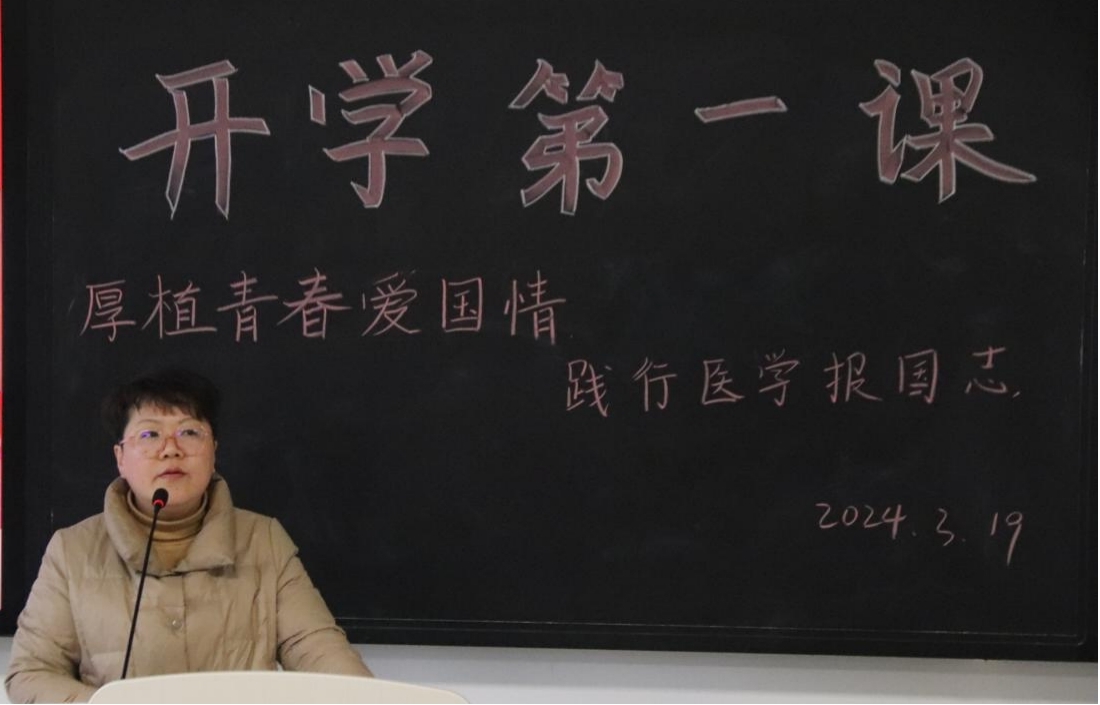 开学第一课
厚植青春爱国情
践行医学报国志
2024.3.19